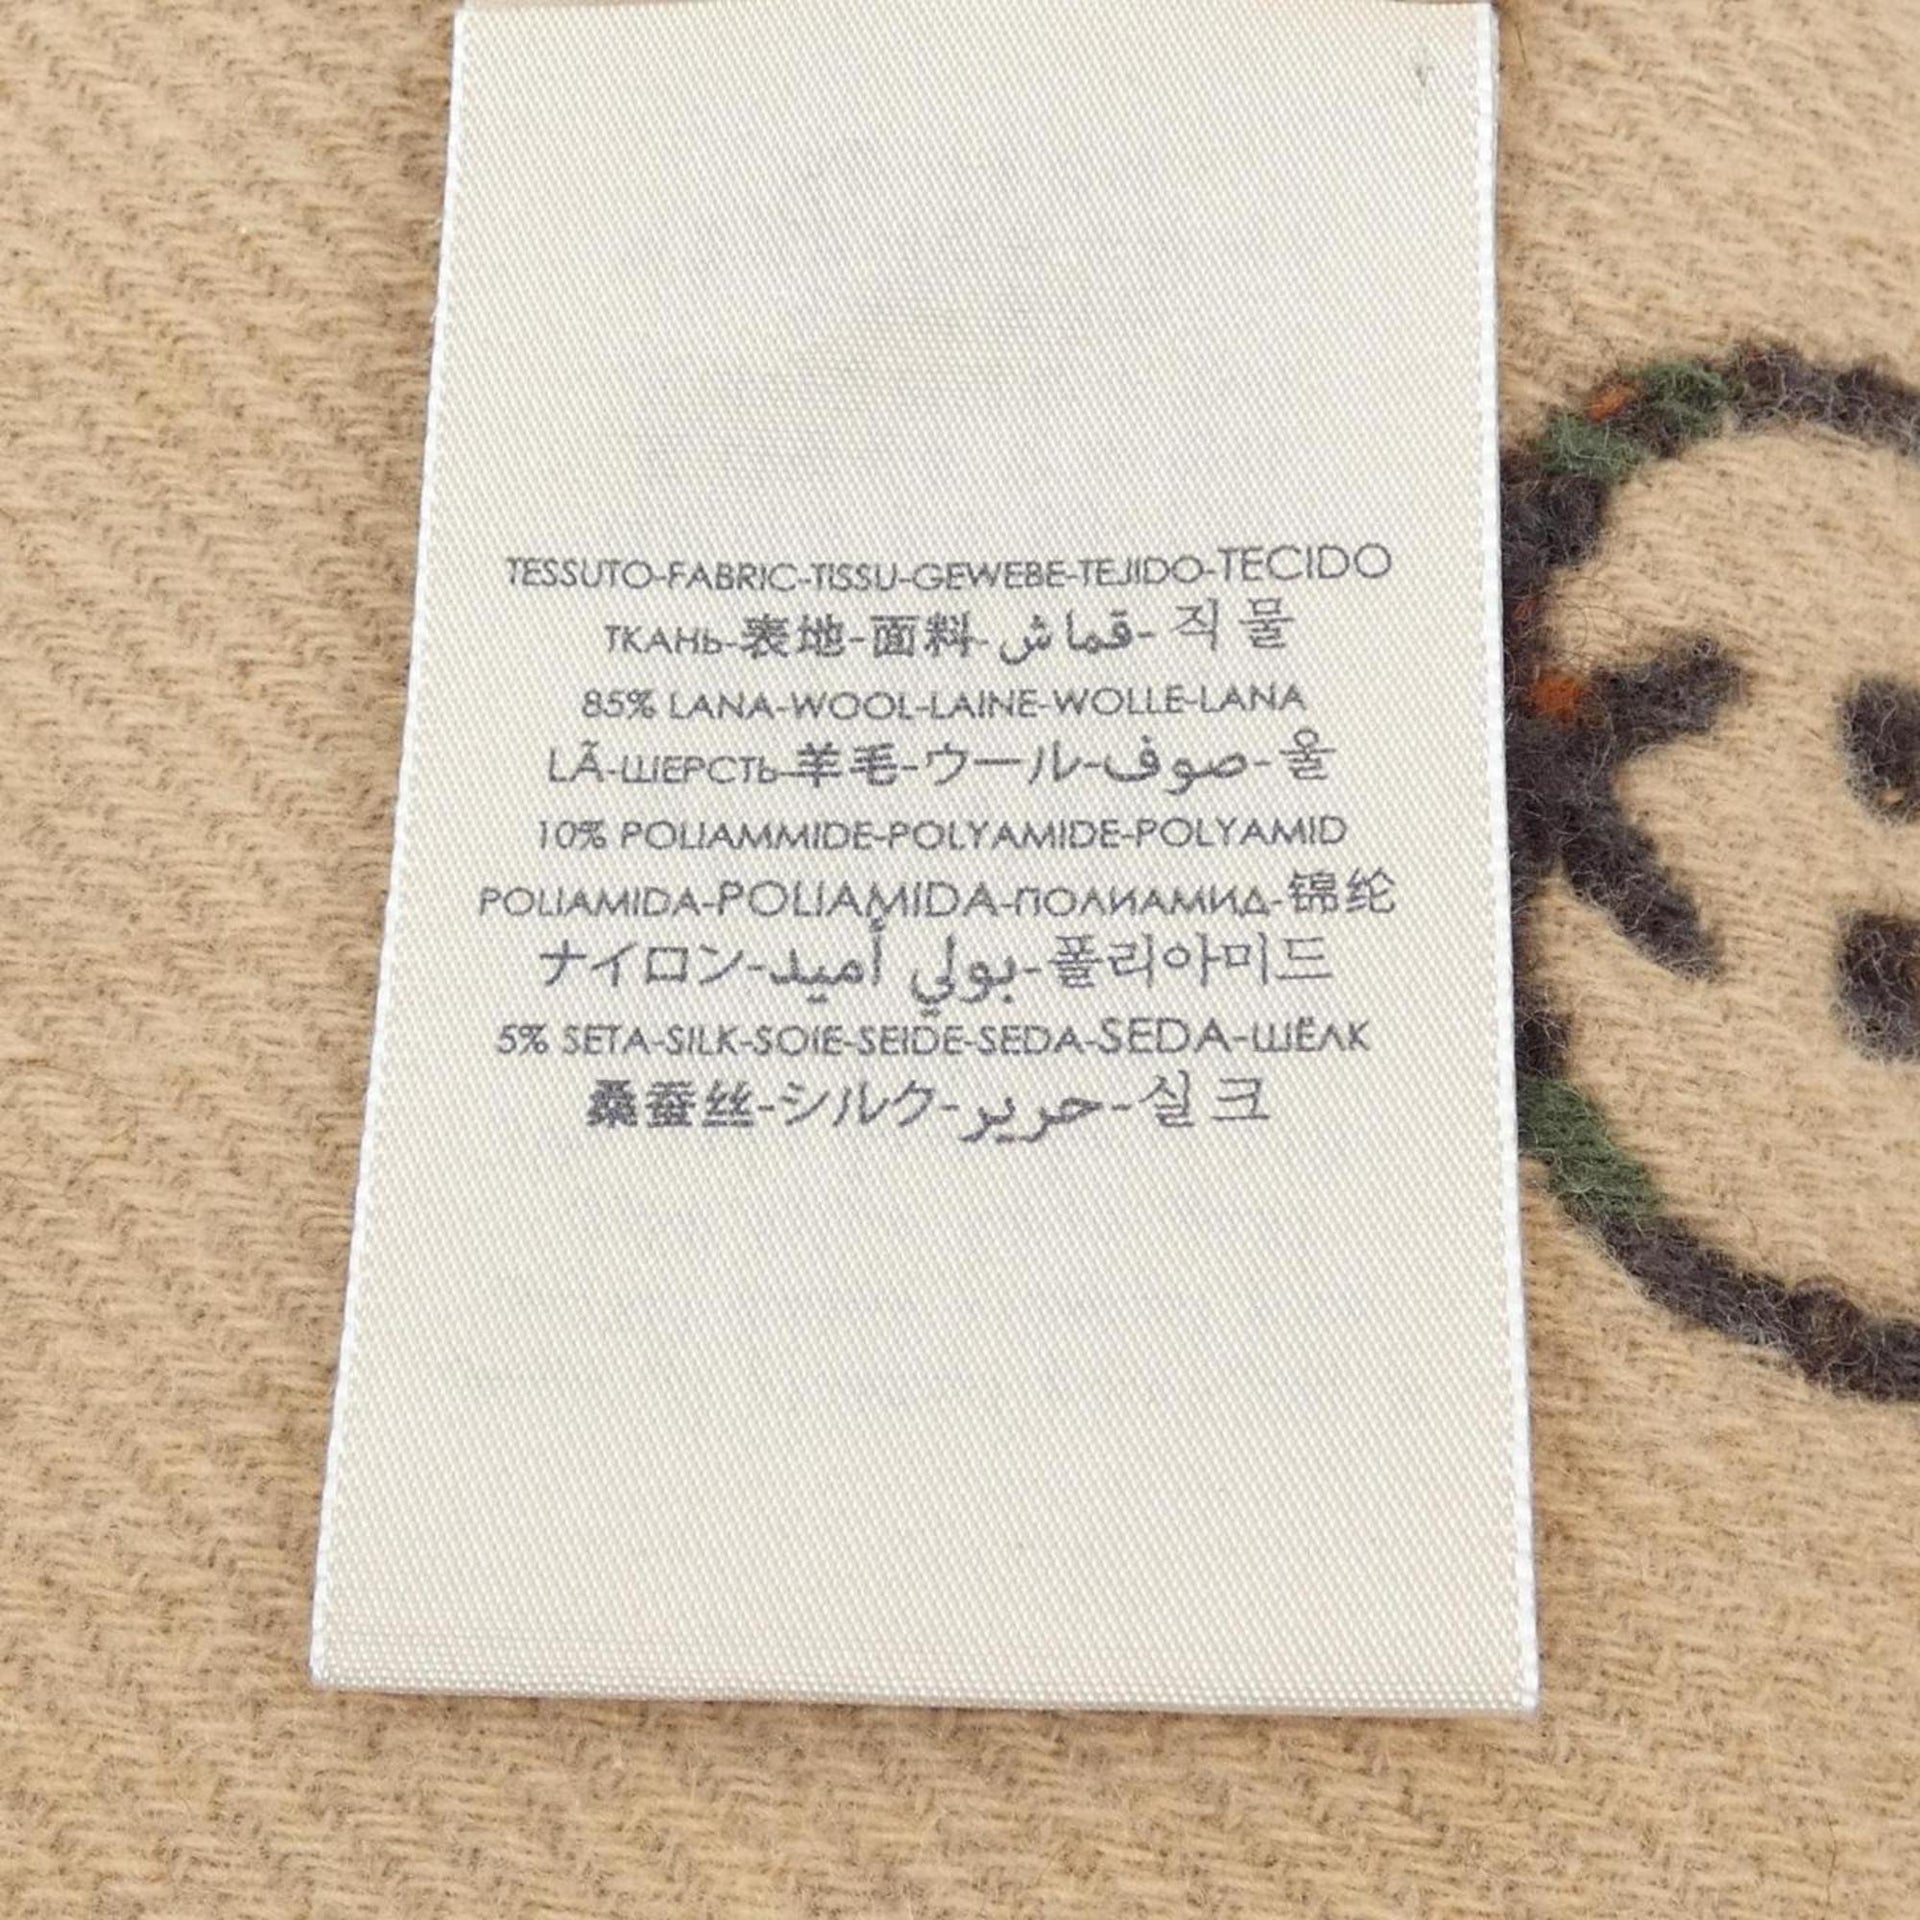 TESSUTO-FABRIC-TISSU-GEWEBE-TEJIDO-TECIDO
ТКАНЬ-表地-面料-قماش-직물
85% LANA-WOOL-LAINE-WOLLE-LANA
LÃ-ШЕРСТЬ-羊毛-ウール-صوف-울
10% POLIAMMIDE-POLYAMIDE-POLYAMID
POLIAMIDA-POLIAMIDA-ПОЛИАМИД-锦纶
ナイロン-بولي أميد-폴리아미드
5% SETA-SILK-SOIE-SEIDE-SEDA-SEDA-ШЁЛК
桑蚕丝-シルク-حرير-실크